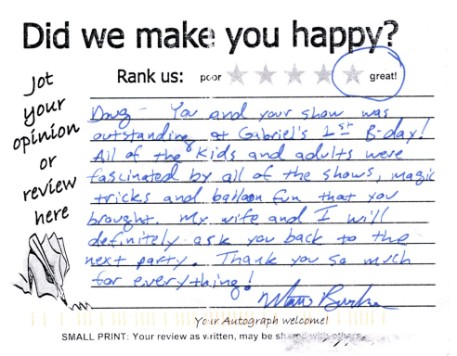 Did we make you happy?
Rank us: poor great!
Jot
your
opinion
or
review
here
Doug - You and your show was
outstanding at Gabriel's 1st B-day!
All of the kids and adults were
fascinated by all of the shows, magic
tricks and balloon fun that you
brought. My wife and I will
definitely ask you back to the
next party. Thank you so much
for everything!
Your Autograph welcome!
SMALL PRINT: Your review as written, may be shared with others.